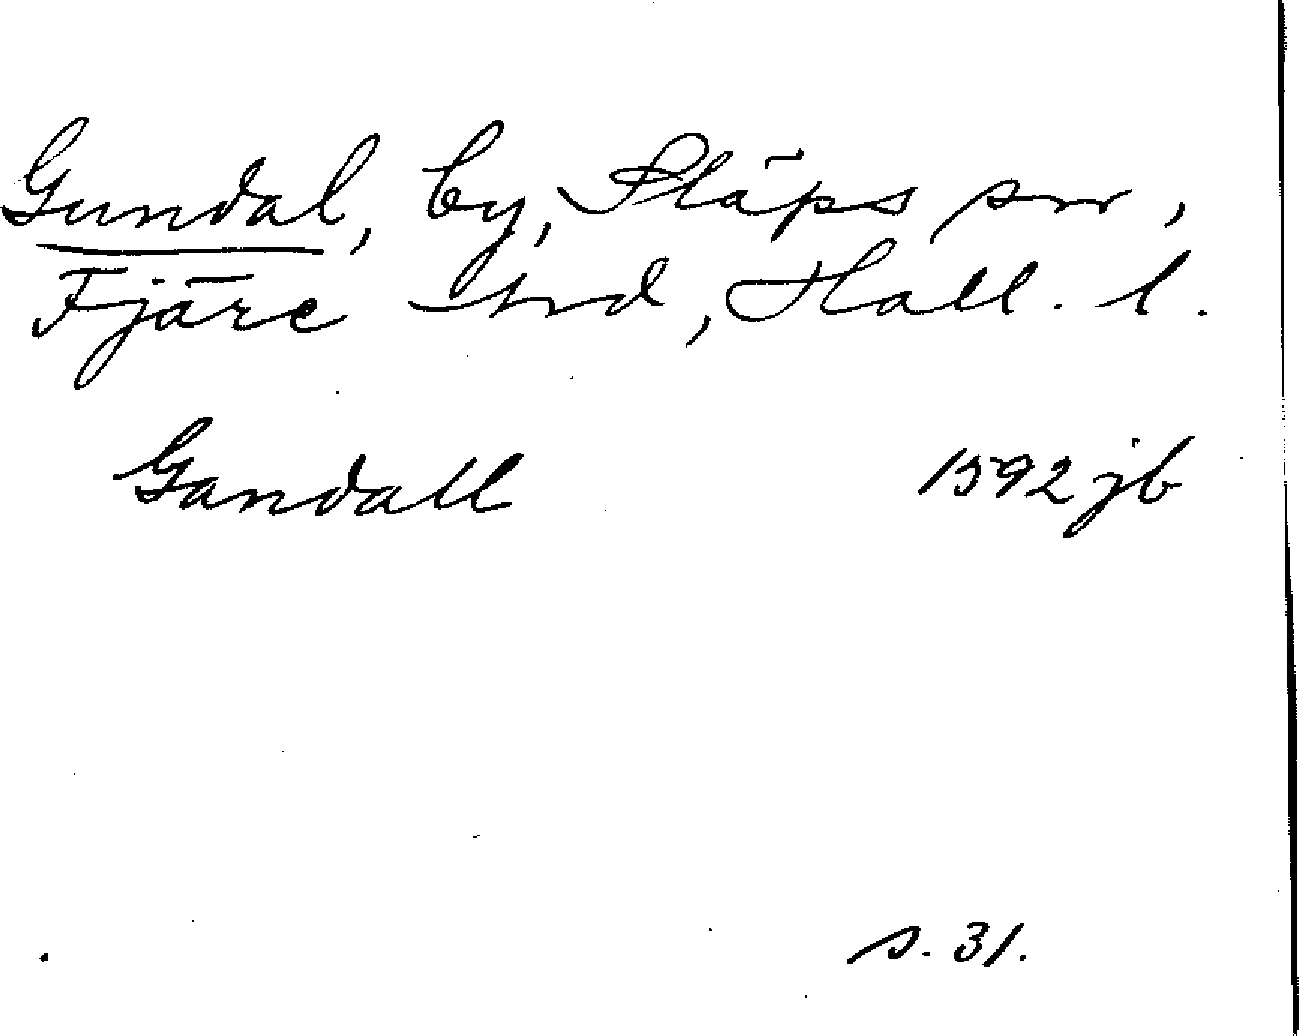 Gundal, by, Släps sn,
Fjäre hrd, Hall. l.
Gandall 1592 jb
s. 31.